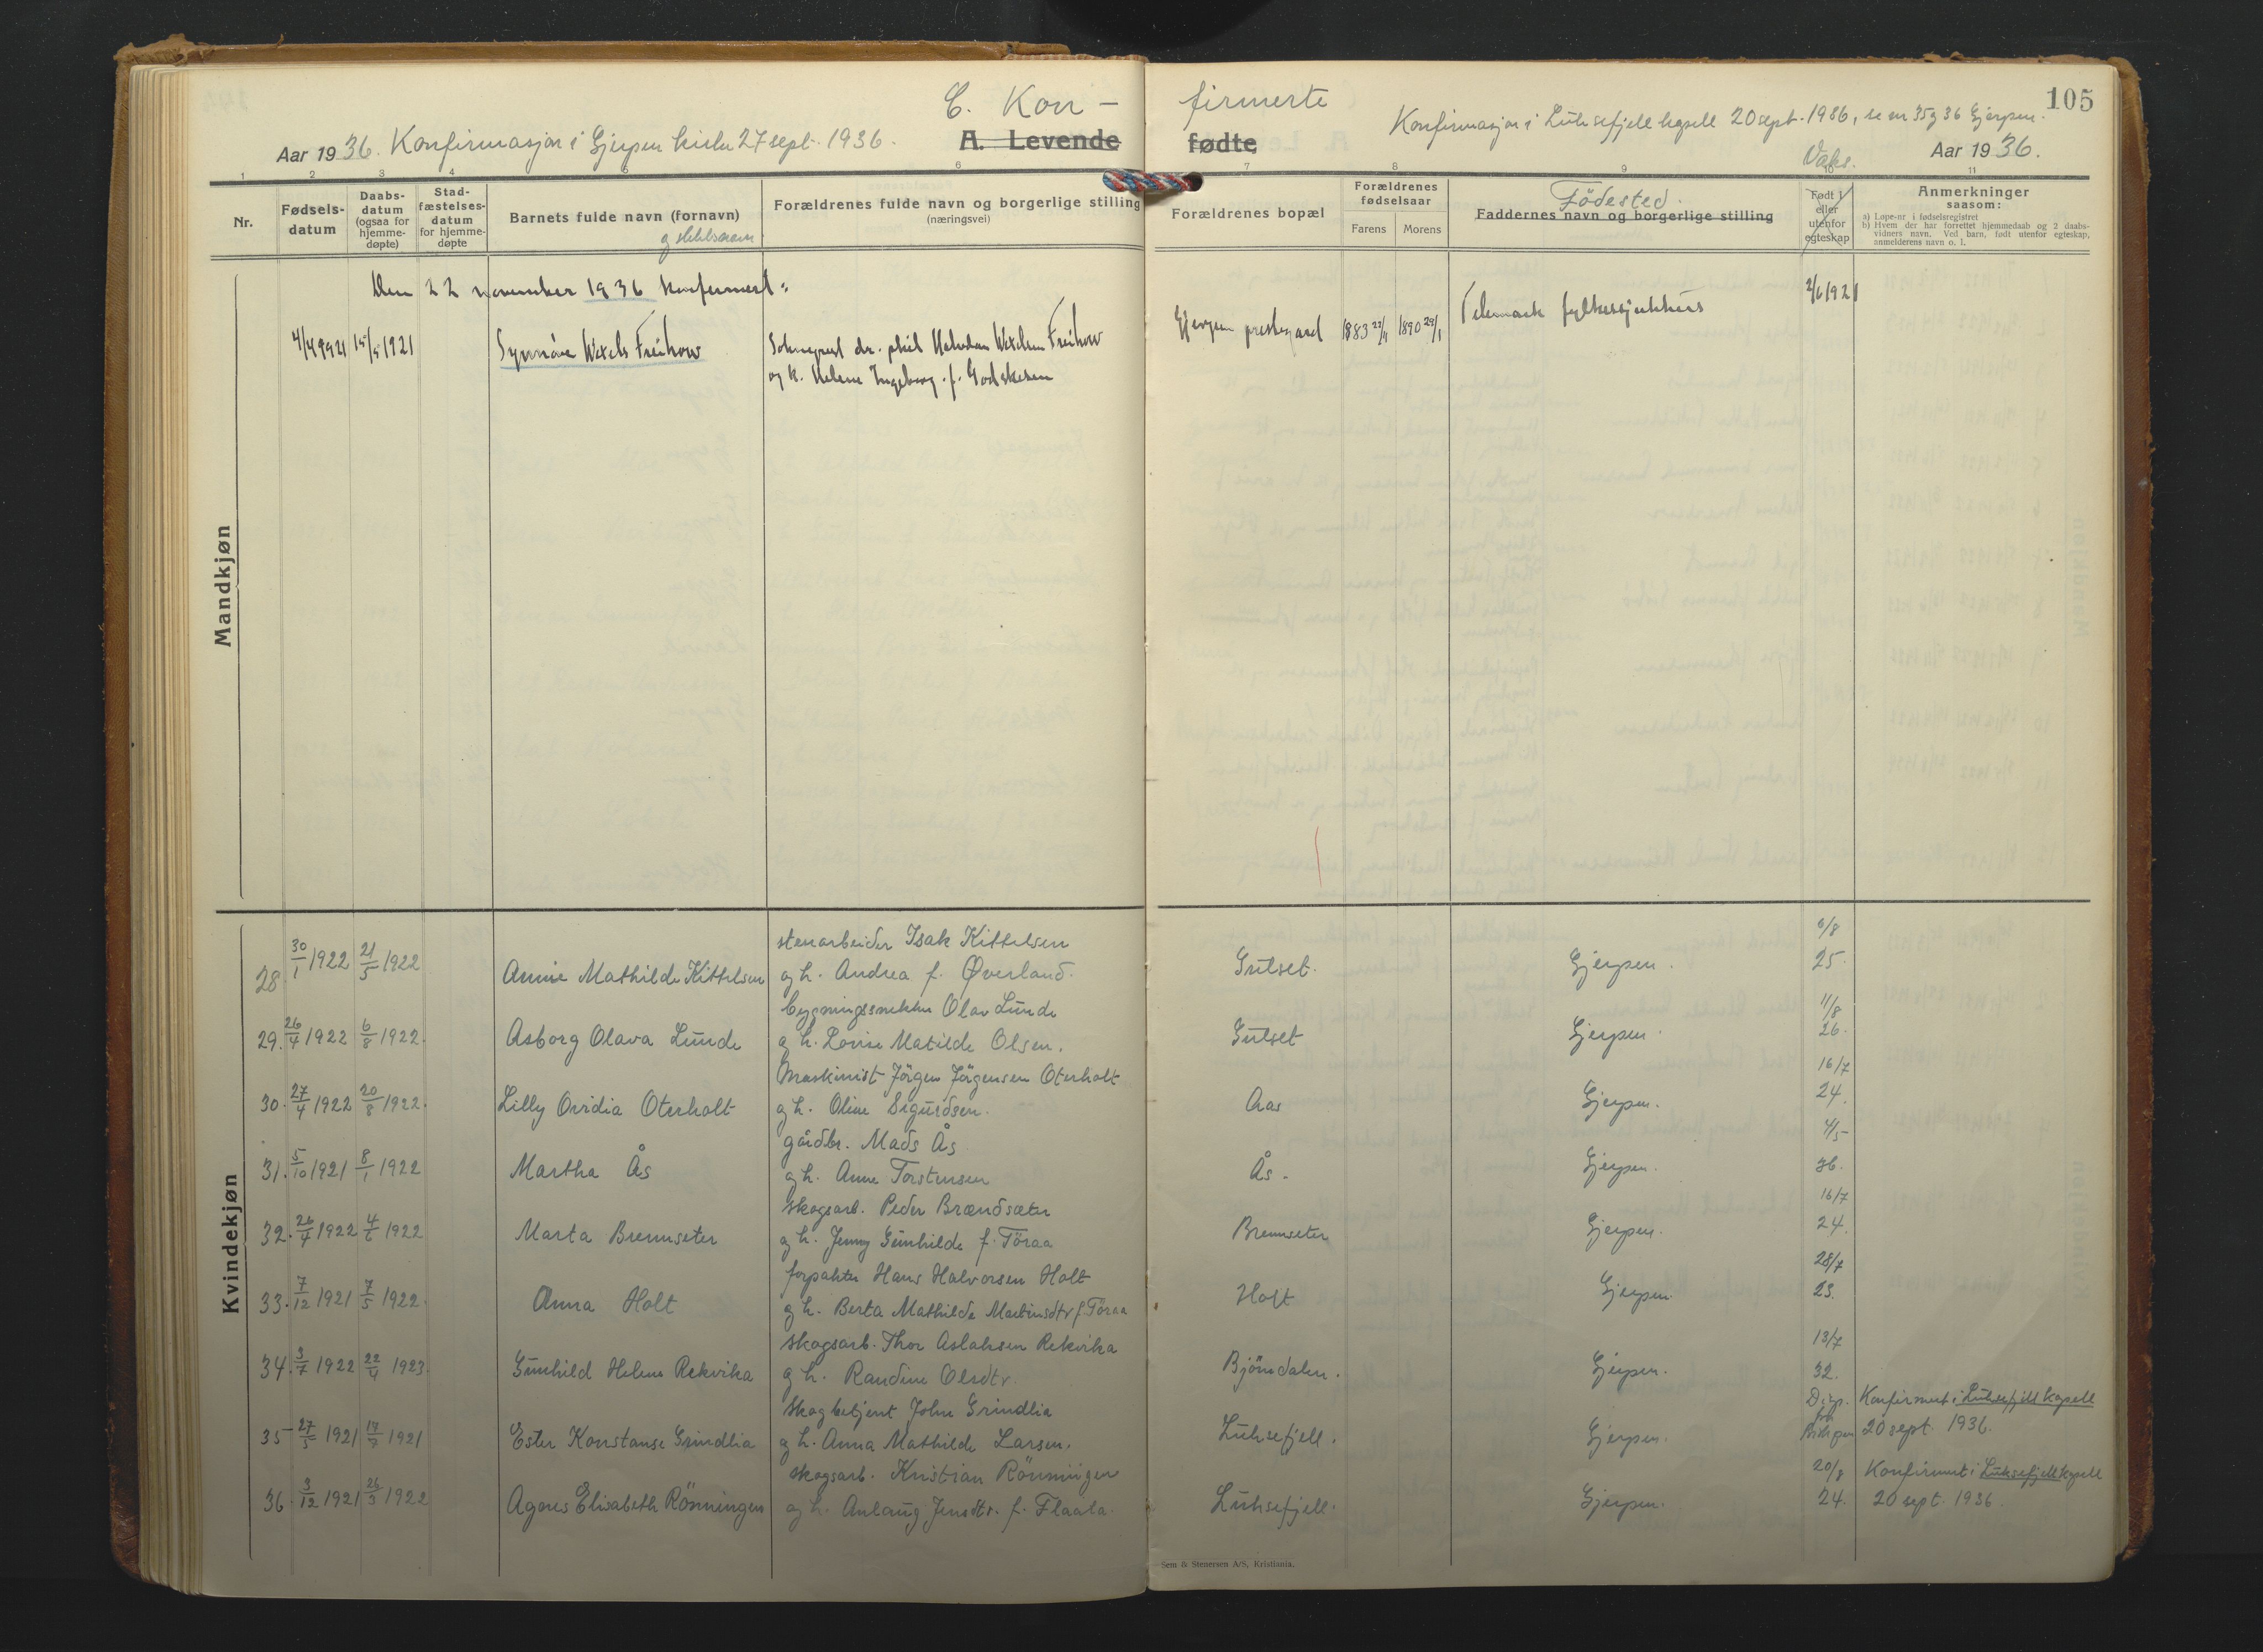 C. Kon-
firmerte
105
Aar 1936. Konfirmasjon i Gjerpen kirke 27 sept. 1936.
A. Levende
fødte
Konfirmasjon i Luksefjell kapell 20 sept. 1936, se nr 35 og 36 Gjerpen.
Vaks.
Aar 1936.
1 2 3 4 5 6 7 8 9 10 11
Nr.
Fødsels-
datum
Daabs-
datum
(ogsaa for
hjemme-
døpte)
Stad-
fæstelses-
datum
for hjemme-
døpte
Barnets fulde navn (fornavn)
og slektsnavn
Forældrenes fulde navn og borgerlige stilling
(næringsvei)
Forældrenes bopæl
Forældrenes
fødselsaar
Farens Morens
Födested.
Faddernes navn og borgerlige stilling
Født i
eller
utenfor
egteskap
Anmerkninger
saasom:
a) Løpe-nr i fødselsregistret
b) Hvem der har forrettet hjemmedaab og 2 daabs-
vidners navn. Ved barn, født utenfor egteskap,
anmelderens navn o. l.
Mandkjøn
Den 22 november 1936 konfirmert:
4/4 1921 15/5 1921 Synnøve Wexels Freihow Sokneprest dr. phil Halvdan Wexelsen Freihow Gjerpen prestegard 1883 22/11 1890 29/1 Telemark fylkessjukehus 2/6 1921
og h. Helene Ingeborg f. Godskesen
Kvindekjøn
stenarbeider Isak Kittelsen 6/8
28. 30/1 1922 21/5 1922 Annie Mathilde Kittelsen og h. Andrea f. Øverland. Gulset. Gjerpen. 25.
bygningssnekker Olav Lunde 11/8
29. 26/4 1922 6/8 1922. Asborg Olava Lunde og h. Lovise Matilde Olsen. Gulset Gjerpen. 26.
Maskinist Jörgen Jörgensen Oterholt 16/7
30. 27/4 1922 20/8 1922. Lilly Ovidia Oterholt og h. Oline Sigurdsen. Aas Gjerpen. 24.
gårdbr. Mads Ås 4/5
31. 5/10 1921 8/1 1922 Martha Ås og h. Anne Torstensen Ås. Gjerpen. 36.
skogsarb. Peder Brændsæter 16/7
32. 26/4 1922 4/6 1922 Marta Brennseter og h. Jenny Gunhilde f. Töraa Brennseter Gjerpen. 24.
forpakter Hans Halvorsen Holt 28/7
33. 7/12 1921 7/5 1922. Anna Holt og h. Berta Mathilde Martinsdtr f. Töraa Holt Gjerpen 23.
skogsarb. Thor Aslaksen Rekvika 13/7
34. 3/7 1922 22/4 1923. Gunhild Helene Rekvika og h. Randine Olsdtr. Bjömdalen. Gjerpen. 32.
skogbetjent John Grindlia Disp. Konfirmert i Luksefjell kapell
35 27/5 1921 17/7 1921 Ester Konstanse Grindlia og h. Anna Mathilde Larsen. Luksefjell. Gjerpen. fra Biskopen 20 sept. 1936.
skogsarb. Kristian Rönningen 20/8 Konfirmert i Luksefjell kapell
36. 3/12 1921 26/3 1922 Agnes Elisabeth Rönningen og h. Anlaug Jensdtr. f. Flaata. Luksefjell. Gjerpen. 24. 20 sept. 1936.
Sem & Stenersen A/S, Kristiania.